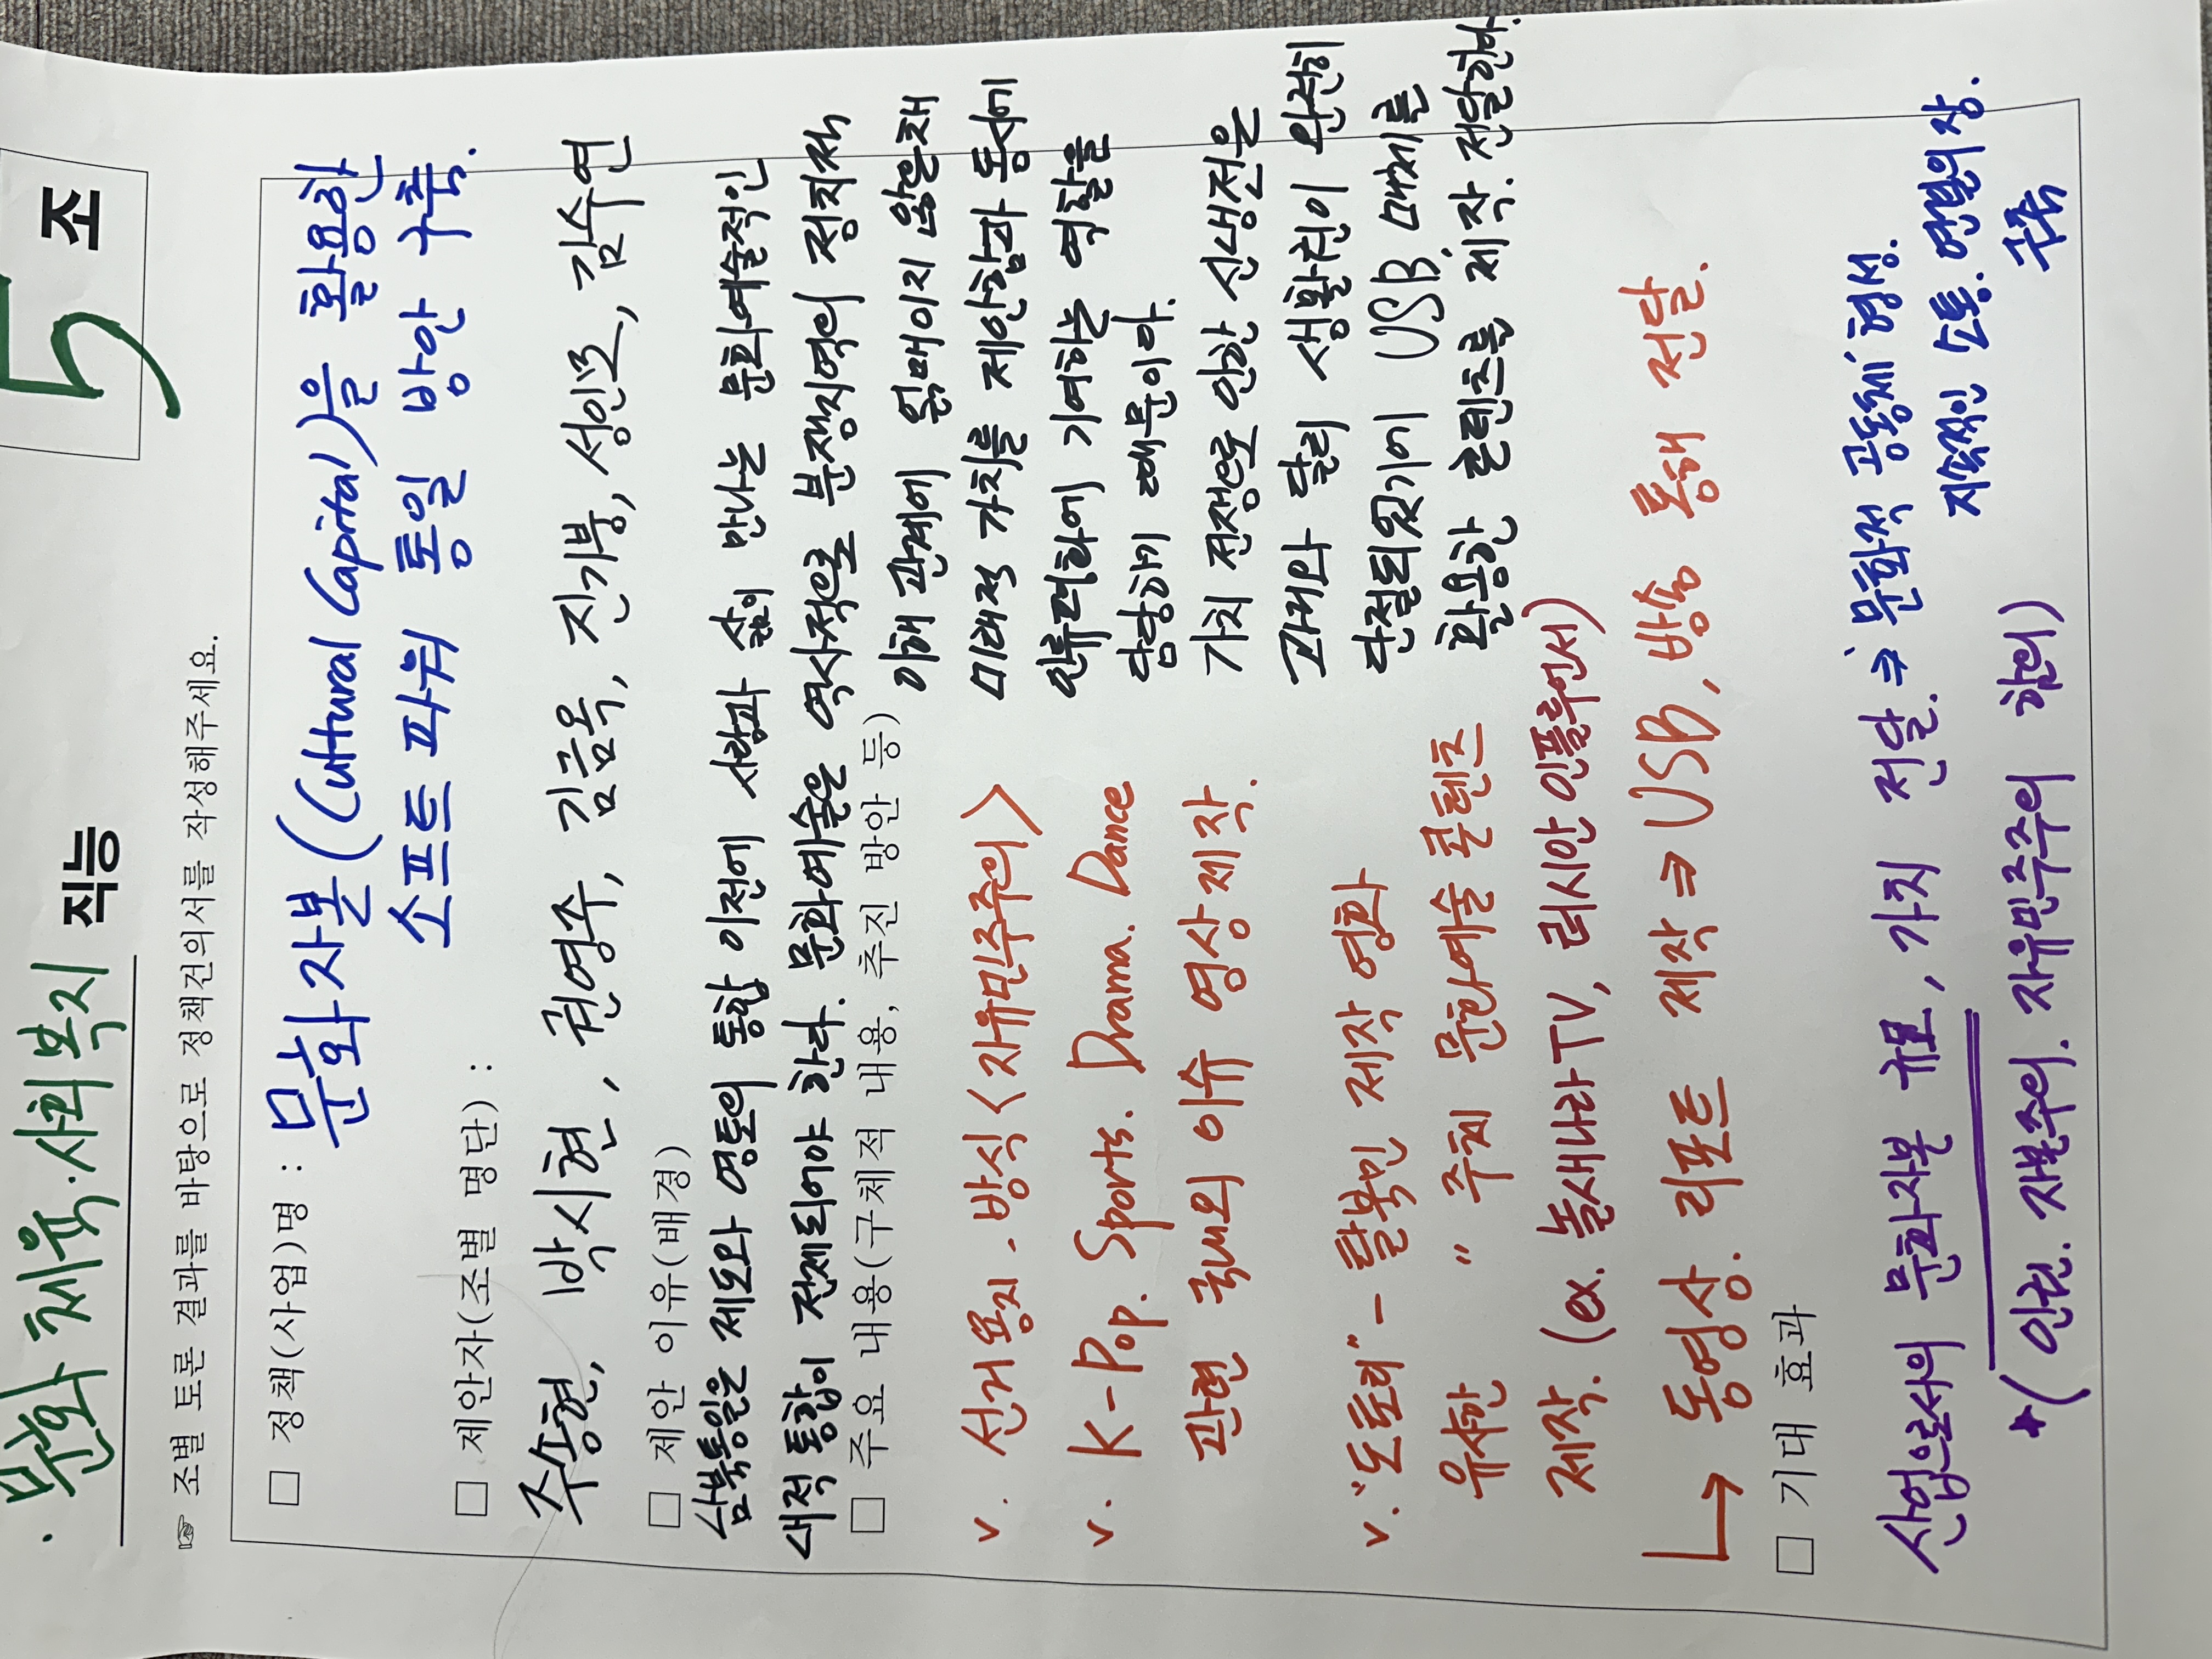 문화체육·사회복지 직능
5 조
☞ 조별 토론 결과를 바탕으로 정책건의서를 작성해주세요.
□ 정책(사업)명 : 문화자본(Cultural Capital)을 활용한
소프트 파워 통일 방안 구축.
□ 제안자(조별 명단) :
주송현, 박시현, 권영주, 김금옥, 진기붕, 성인모, 김수연
□ 제안 이유(배경)
남북통일은 제도와 영토의 통합 이전에 사람과 삶이 만나는 문화예술적인
내적 통합이 전제되어야 한다. 문화예술은 역사적으로 분쟁지역의 정치적
이해 관계에 얽매이지 않은채
미래적 가치를 제안함과 동시에
인류평화에 기여하는 역할을
담당하기 때문이다.
가치 전쟁으로 인한 신냉전은
과거와 달리 생활권이 완전히
단절되있기에 USB 매체를
활용한 콘텐츠를 제작. 전달한다.
□ 주요 내용(구체적 내용, 추진 방안 등)
v. 선거용지 - 방식 <자유민주주의>
v. K-Pop. Sports. Drama. Dance
관련 국내외 이슈 영상제작.
v. "도토리" - 탈북민 제작 영화
유사한 " 주체 문화예술 콘텐츠
제작. (ex. 놀새나라TV, 러시안 인플루언서)
↳ 동영상. 리포트 제작 ⇒ USB, 방송 통해 전달.
□ 기대 효과
산업으로서의 문화자본 규모, 가치 전달. ⇒ '문화적 공동체' 형성.
지속적인 소통. 연결의 장.
구축
*(인권. 자본주의. 자유민주주의 함의)